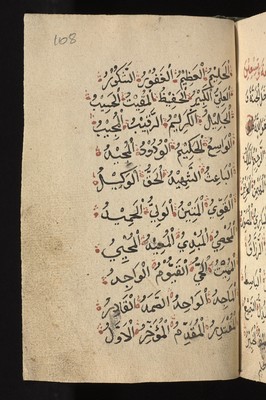 108
الحليم العظيم الغفور الشكور
العلي الكبير الحفيظ المقيت الحسيب
الجليل الكريم الرقيب المجيب
الواسع الحكيم الودود المجيد
الباعث الشهيد الحق الوكيل
القوي المتين الولي الحميد
المحصي المبدي المعيد المحيي
المميت الحي القيوم الواجد
الماجد الواحد الصمد القادر
المقتدر المقدم المؤخر الاول